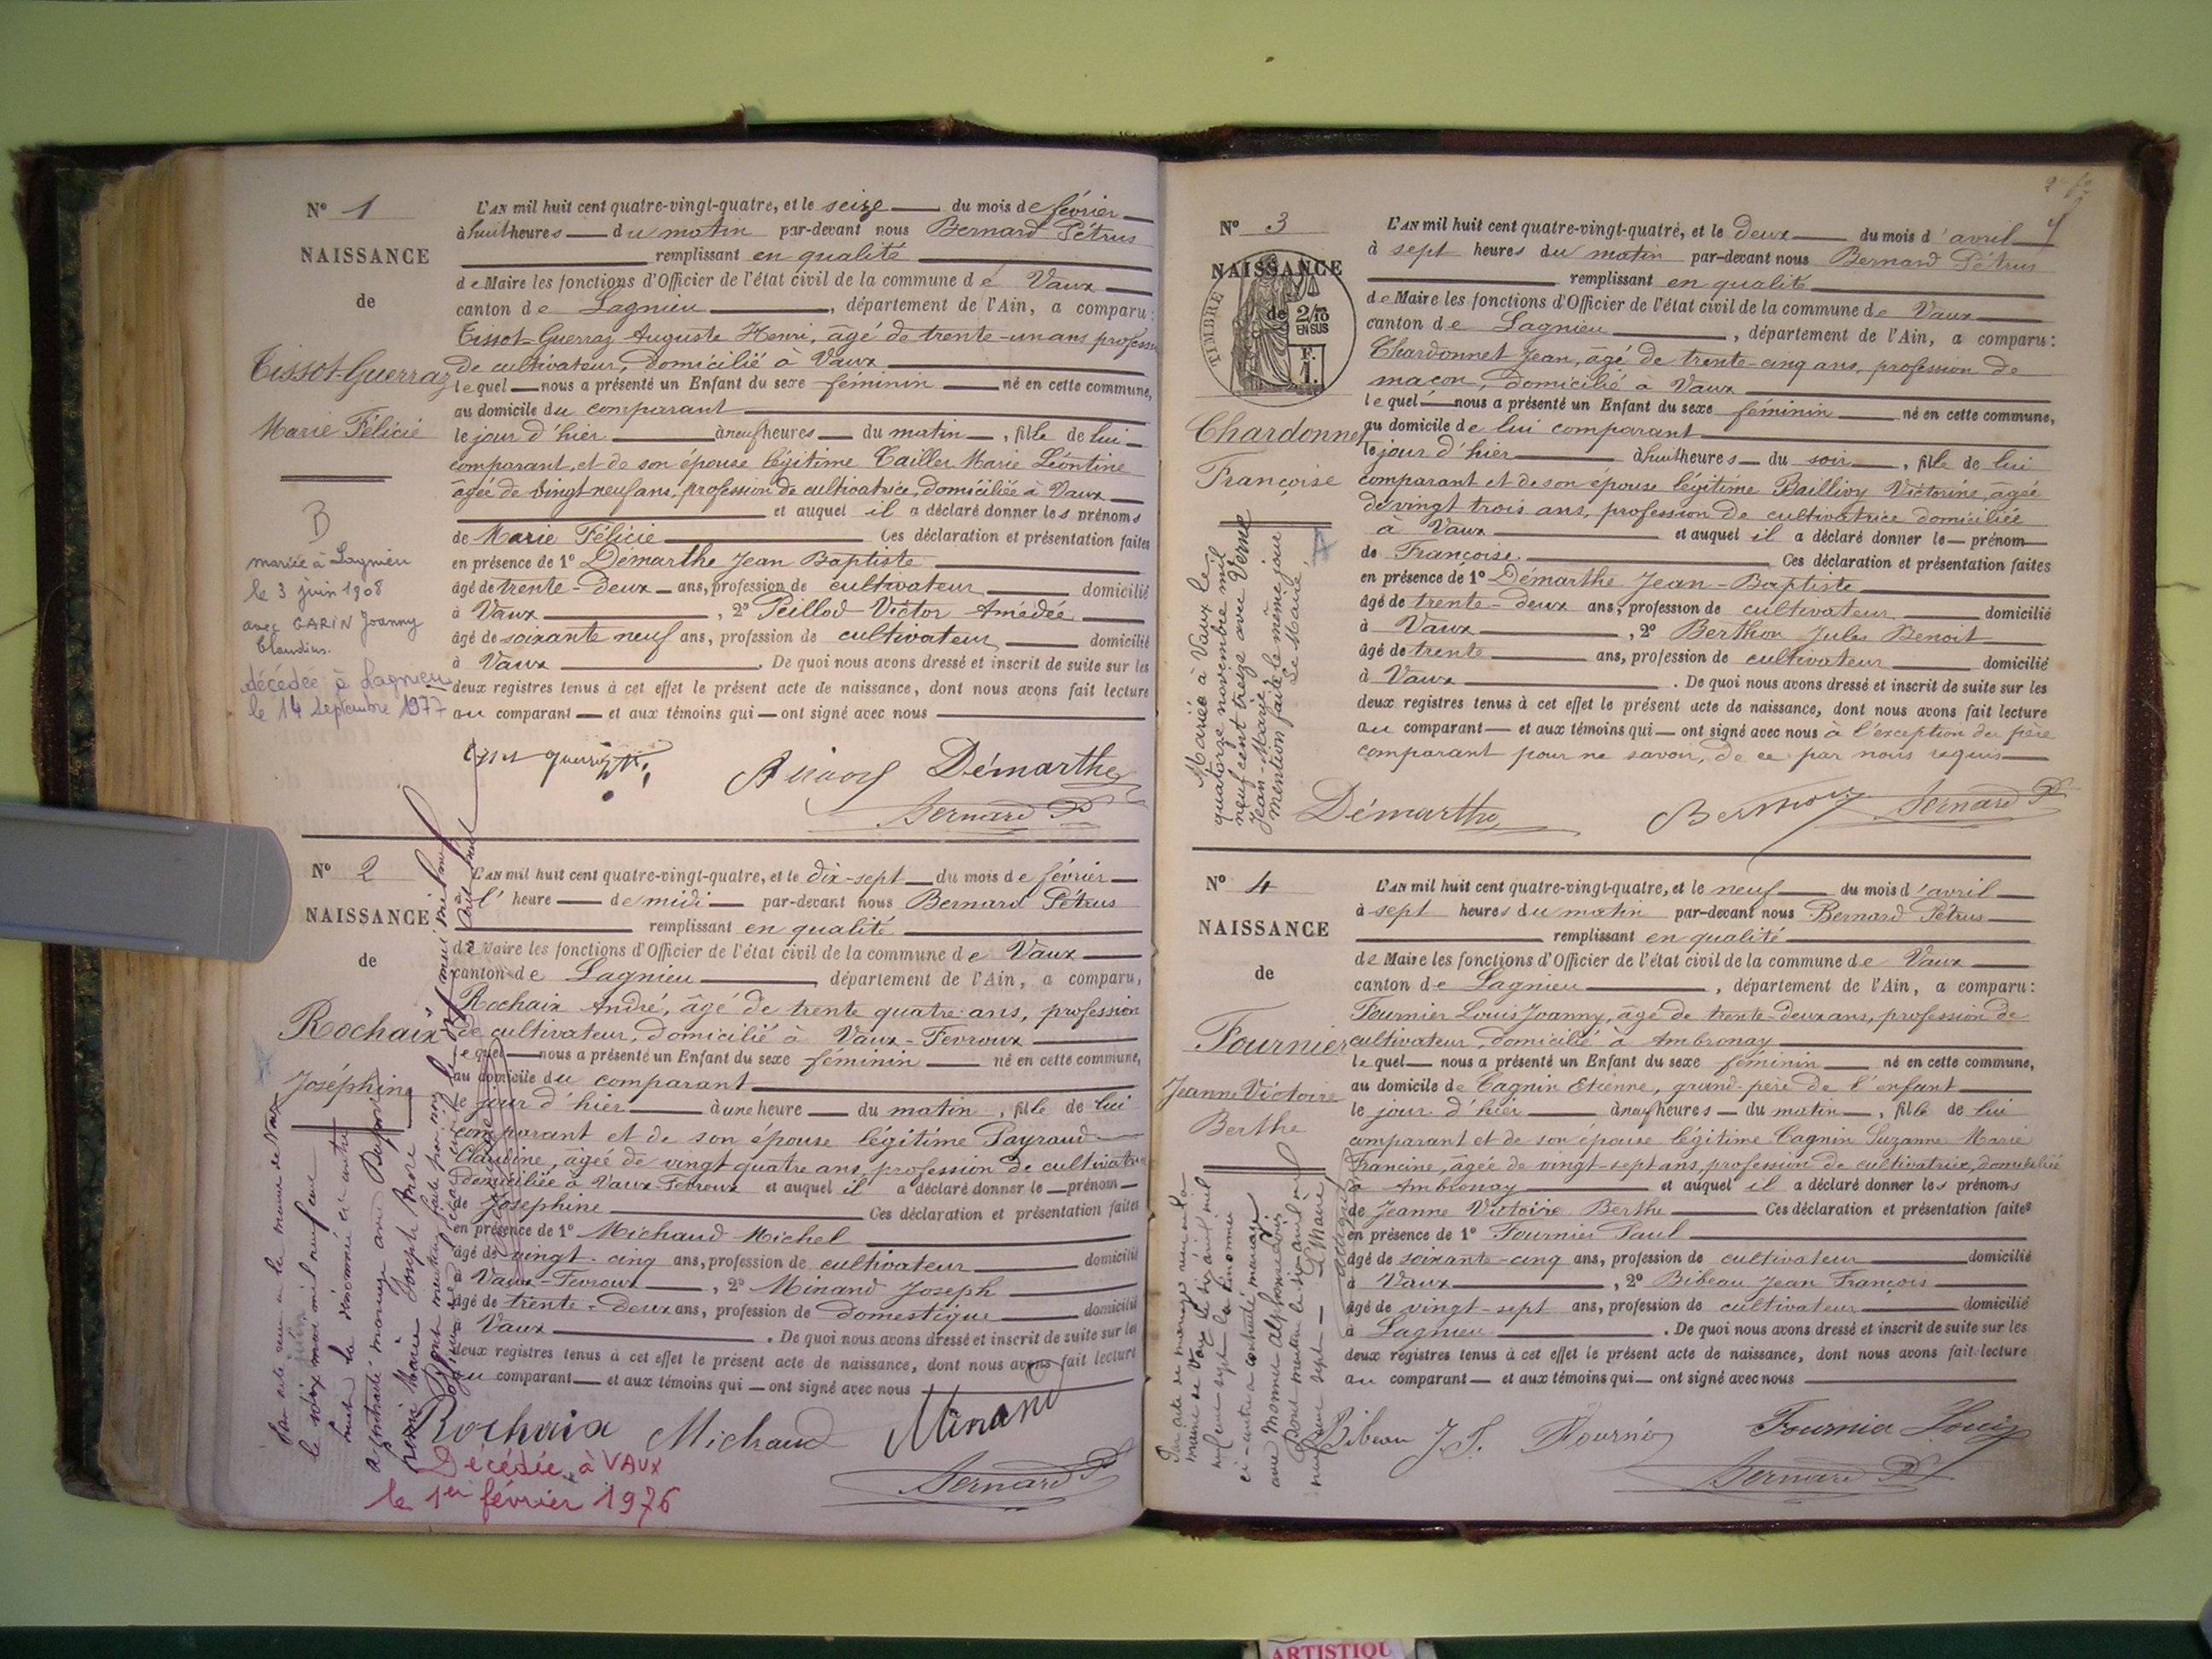 N° 1
NAISSANCE
de
Tissot-Guerraz
Marie Félicie
B
mariée à Lagnieu
le 3 juin 1908
avec GARIN Joanny
Claudius.
décédée à Lagnieu
le 14 Septembre 1977
L'AN mil huit cent quatre-vingt-quatre, et le seize du mois de février
à huit heures du matin par-devant nous Bernard Pétrus
remplissant en qualité
de Maire les fonctions d'Officier de l'état civil de la commune de Vaux
canton de Lagnieu, département de l'Ain, a comparu:
Tissot-Guerraz Auguste Henri, âgé de trente-un ans profession
de cultivateur, domicilié à Vaux
lequel nous a présenté un Enfant du sexe féminin né en cette commune,
au domicile du comparant
le jour d'hier à neuf heures du matin, fille de lui
comparant, et de son épouse légitime Cailler Marie Léontine
âgée de vingt neuf ans, profession de cultivatrice, domiciliée à Vaux
et auquel il a déclaré donner les prénoms
de Marie Félicie Ces déclaration et présentation faites
en présence de 1° Démarthe Jean Baptiste
âgé de trente-deux ans, profession de cultivateur domicilié
à Vaux, 2° Peillod Victor Amédée
âgé de soixante neuf ans, profession de cultivateur domicilié
à Vaux. De quoi nous avons dressé et inscrit de suite sur les
deux registres tenus à cet effet le présent acte de naissance, dont nous avons fait lecture
au comparant et aux témoins qui ont signé avec nous
Démarthe
Bernard P
N° 2
NAISSANCE
de
Rochaix
Joséphine
L'AN mil huit cent quatre-vingt-quatre, et le dix-sept du mois de février
à l'heure de midi par-devant nous Bernard Pétrus
remplissant en qualité
de Maire les fonctions d'Officier de l'état civil de la commune de Vaux
canton de Lagnieu, département de l'Ain, a comparu,
Rochaix André, âgé de trente quatre ans, profession
de cultivateur, domicilié à Vaux-Fevroux
lequel nous a présenté un Enfant du sexe féminin né en cette commune,
au domicile du comparant
le jour d'hier à une heure du matin, fille de lui
comparant et de son épouse légitime Payraud
Claudine, âgée de vingt quatre ans, profession de cultivatrice
domiciliée à Vaux-Fevroux et auquel il a déclaré donner le prénom
de Joséphine Ces déclaration et présentation faites
en présence de 1° Michaud Michel
âgé de vingt-cinq ans, profession de cultivateur domicilié
à Vaux-Fevroux, 2° Minand Joseph
âgé de trente-deux ans, profession de domestique domicilié
à Vaux. De quoi nous avons dressé et inscrit de suite sur les
deux registres tenus à cet effet le présent acte de naissance, dont nous avons fait lecture
au comparant et aux témoins qui ont signé avec nous
Rochaix Michaud Minand
Bernard P
Décédée à VAUX
le 1er février 1976
N° 3
NAISSANCE
de
TIMBRE
2/10
EN SUS
F.
1.
Chardonnet
Françoise
Mariée à Vaux le
quatorze novembre mil
neuf cent treize avec Verne
Jean-Marie
Mention faite le même jour
Le Maire
L'AN mil huit cent quatre-vingt-quatre, et le deux du mois d'avril
à sept heures du matin par-devant nous Bernard Pétrus
remplissant en qualité
de Maire les fonctions d'Officier de l'état civil de la commune de Vaux
canton de Lagnieu, département de l'Ain, a comparu:
Chardonnet Jean, âgé de trente-cinq ans, profession de
maçon, domicilié à Vaux
lequel nous a présenté un Enfant du sexe féminin né en cette commune,
au domicile de lui comparant
le jour d'hier à huit heures du soir, fille de lui
comparant et de son épouse légitime Baillivy Victorine, âgée
de vingt trois ans, profession de cultivatrice domiciliée
à Vaux et auquel il a déclaré donner le prénom
de Françoise. Ces déclaration et présentation faites
en présence de 1° Démarthe Jean-Baptiste
âgé de trente-deux ans, profession de cultivateur domicilié
à Vaux, 2° Berthon Jules Benoit
âgé de trente ans, profession de cultivateur domicilié
à Vaux. De quoi nous avons dressé et inscrit de suite sur les
deux registres tenus à cet effet le présent acte de naissance, dont nous avons fait lecture
au comparant et aux témoins qui ont signé avec nous à l'exception du père
comparant pour ne savoir, de ce par nous requis
Démarthe Berthon Bernard P
N° 4
NAISSANCE
de
Fournier
Jeanne Victoire
Berthe
L'AN mil huit cent quatre-vingt-quatre, et le neuf du mois d'avril
à sept heures du matin par-devant nous Bernard Pétrus
remplissant en qualité
de Maire les fonctions d'Officier de l'état civil de la commune de Vaux
canton de Lagnieu, département de l'Ain, a comparu:
Fournier Louis Joanny, âgé de trente-deux ans, profession de
cultivateur, domicilié à Ambronay
lequel nous a présenté un Enfant du sexe féminin né en cette commune,
au domicile de Cagnin Etienne, grand-père de l'enfant
le jour d'hier à neuf heures du matin, fille de lui
comparant et de son épouse légitime Cagnin Suzanne Marie
Francine, âgée de vingt-sept ans, profession de cultivatrice, domiciliée
à Ambronay et auquel il a déclaré donner les prénoms
de Jeanne Victoire Berthe Ces déclaration et présentation faites
en présence de 1° Fournier Paul
âgé de soixante-cinq ans, profession de cultivateur domicilié
à Vaux, 2° Bibeau Jean François
âgé de vingt-sept ans, profession de cultivateur domicilié
à Lagnieu. De quoi nous avons dressé et inscrit de suite sur les
deux registres tenus à cet effet le présent acte de naissance, dont nous avons fait lecture
au comparant et aux témoins qui ont signé avec nous
Bibeau J F. Fournier Fournier Louis
Bernard P
ARTISTIQU